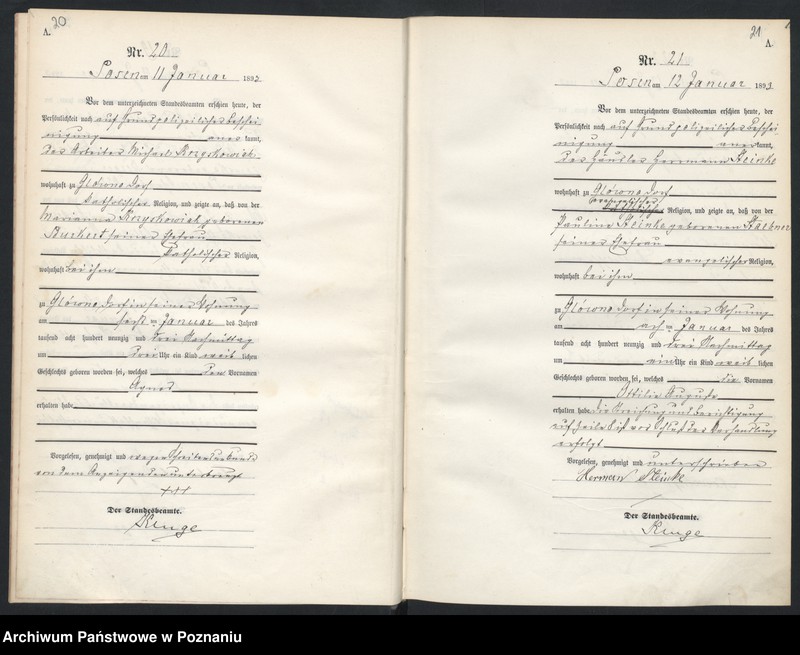 20
A.
Nr. 20
Posen am 11 Januar 1893
Vor dem unterzeichneten Standesbeamten erschien heute, der
Persönlichkeit nach auf Grund polizeilicher Beschei
nigung aner kannt,
des Arbeiter Michael
wohnhaft zu Glówno Dorf
katholischer Religion, und zeigte an, daß von der
Marianna geborenen
seiner Ehefrau
katholischer Religion,
wohnhaft bei ihm
zu Glówno Dorf in seiner Wohnung
am Januar des Jahres
tausend acht hundert neunzig und drei Nachmittag
um drei Uhr ein Kind weib lichen
Geschlechts geboren worden sei, welches den Vornamen
Agnes
erhalten habe
Vorgelesen, genehmigt und wegen Schreibensunkunde
von dem Anzeigenden unterkreuzt
+++
Der Standesbeamte.
21
A.
Nr. 21
Posen am 12 Januar 1893
Vor dem unterzeichneten Standesbeamten erschien heute, der
Persönlichkeit nach auf Grund polizeilicher Beschei
nigung aner kannt,
des Häusler Herrmann Steinke
wohnhaft zu Glówno Dorf
evangelischer Religion, und zeigte an, daß von der
Pauline Steinke geborenen
seiner Ehefrau
evangelischer Religion,
wohnhaft bei ihm
zu Glówno Dorf in seiner Wohnung
am Januar des Jahres
tausend acht hundert neunzig und drei Nachmittag
um ein Uhr ein Kind weib lichen
Geschlechts geboren worden sei, welches die Vornamen
Ottilie Auguste
erhalten habe. Die Streichung und Berichtigung
auf Zeile 8 ist vor Schluß der Verhandlung
erfolgt
Vorgelesen, genehmigt und unterschrieben
Hermann Steinke
Der Standesbeamte.
Archiwum Państwowe w Poznaniu